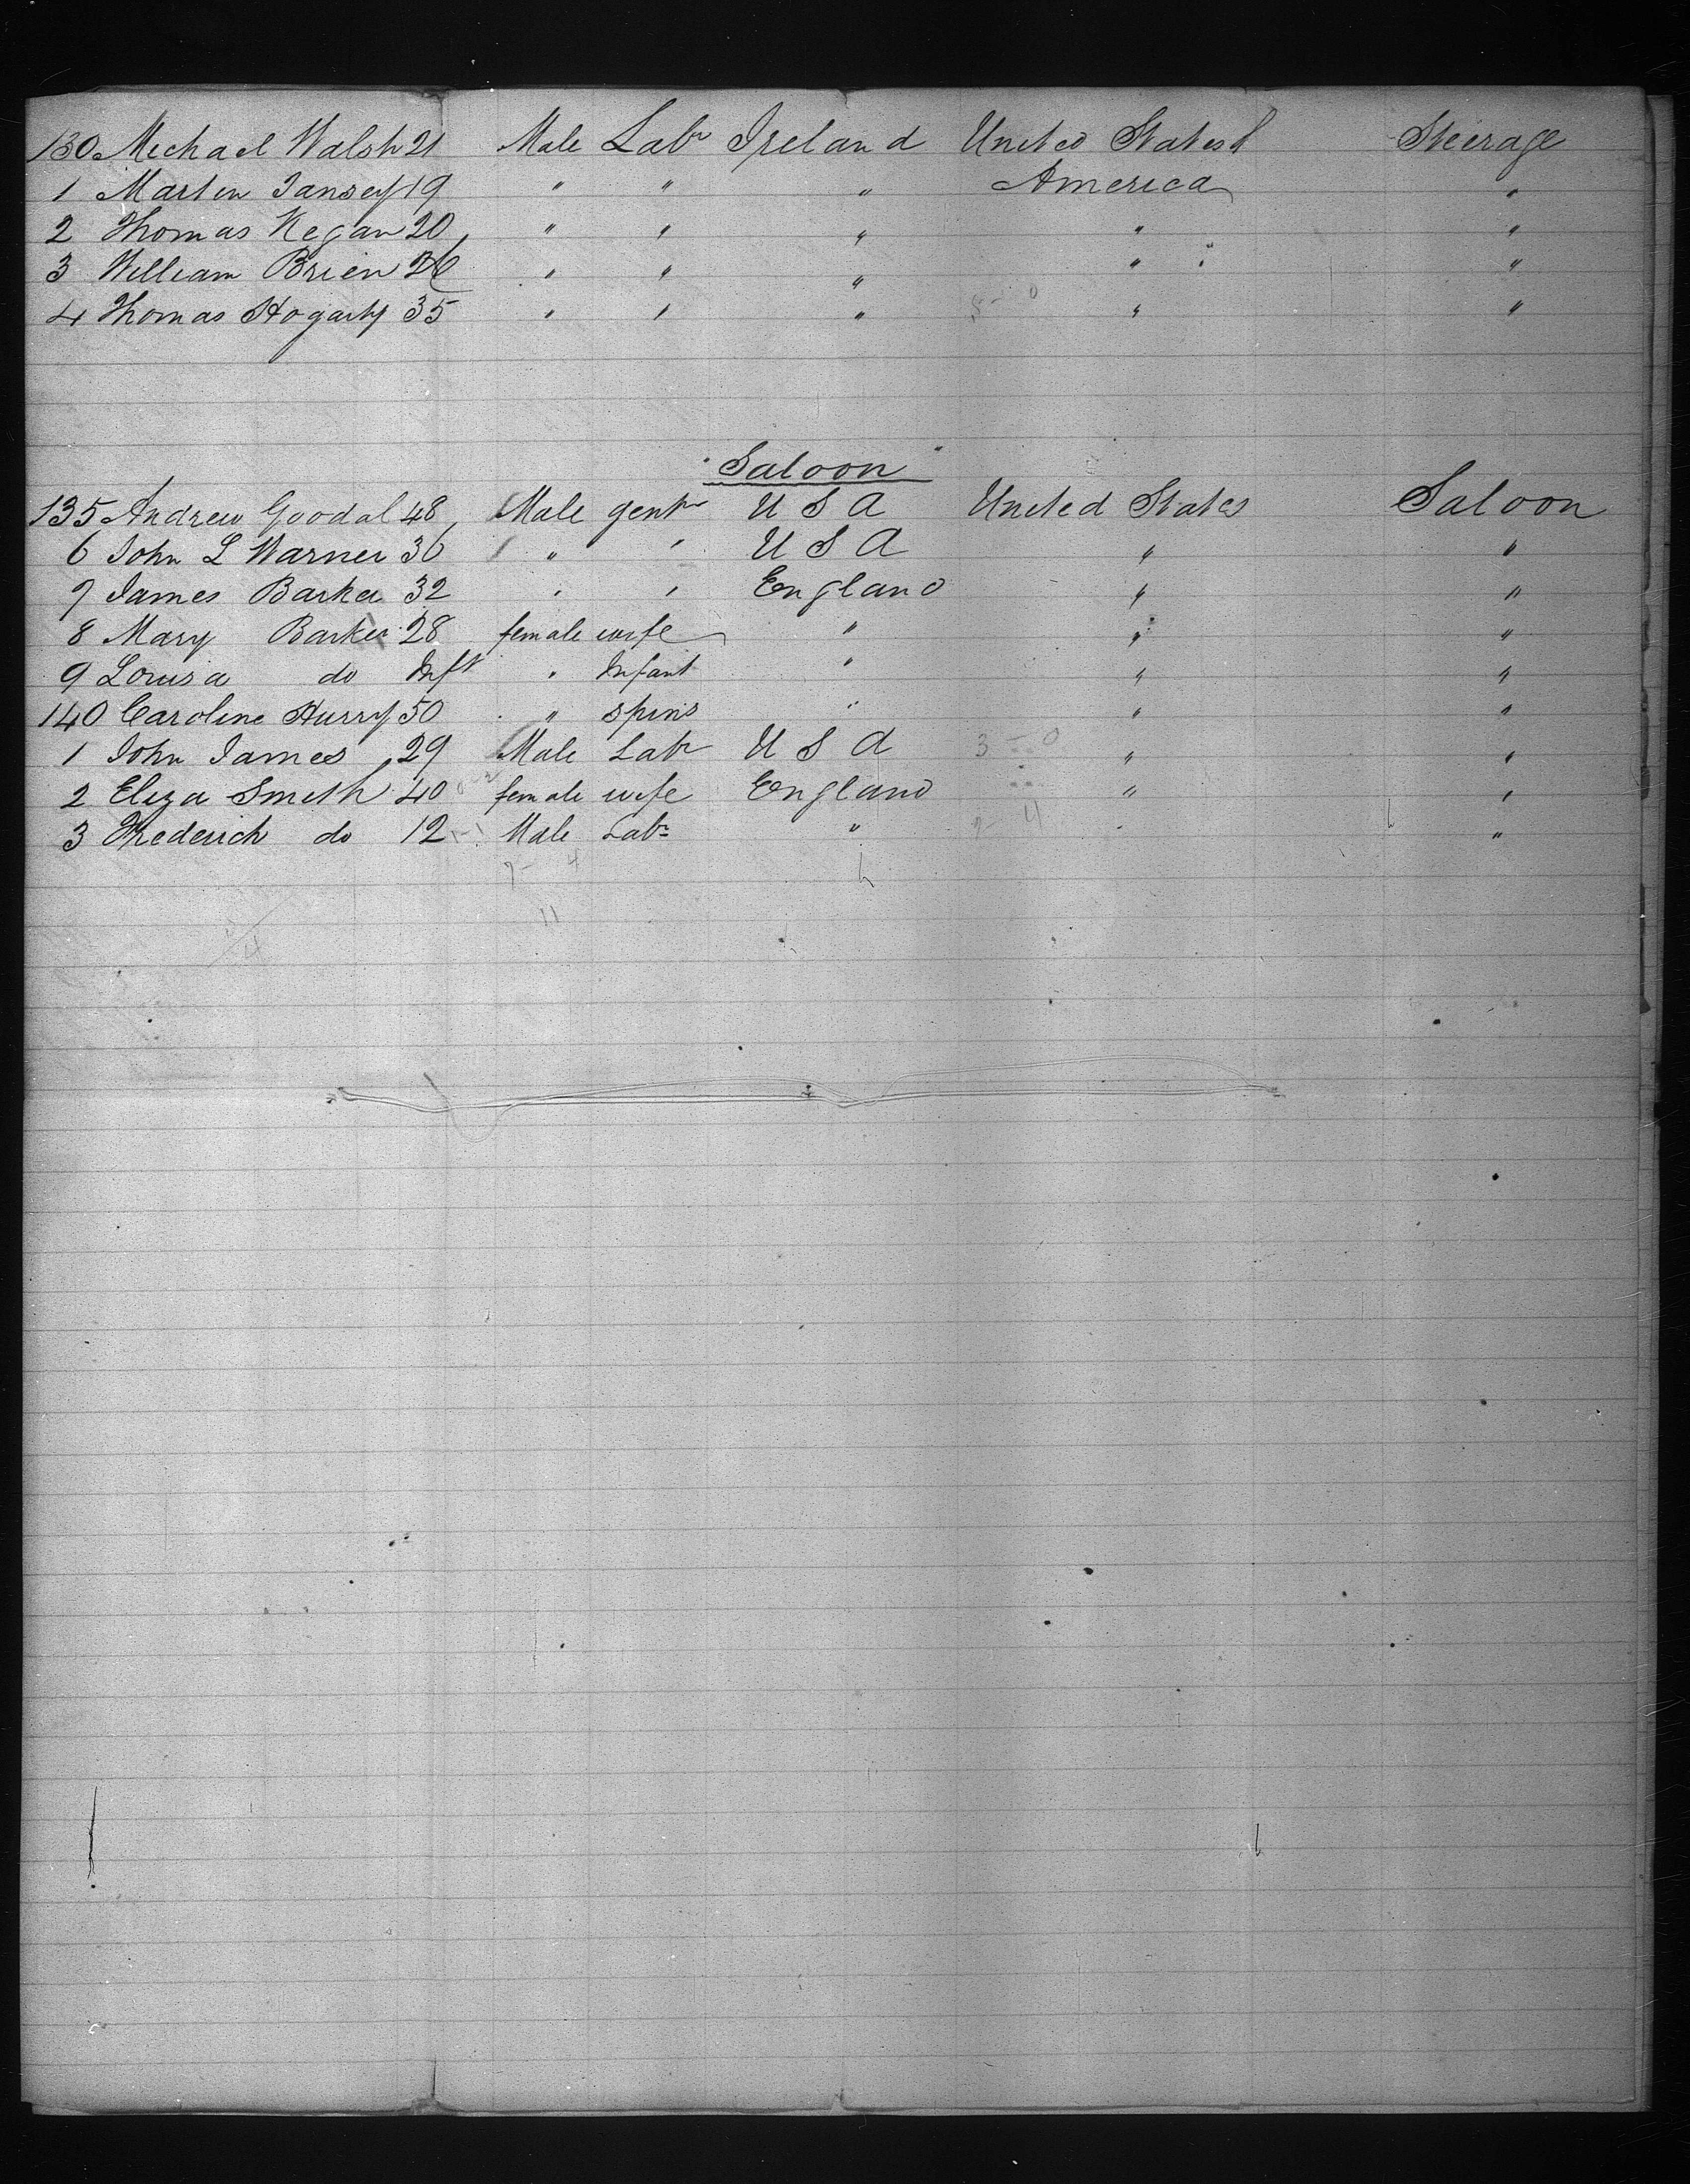 130 Michael Walsh 21 Male Labr Ireland United States of Steerage
1 Martin Tansey 19 " " " America "
2 Thomas Kegan 20 " " " " "
3 William Brien 26 " " " " "
4 Thomas Hogarty 35 " " " " "
"Saloon"
135 Andrew Goodal 48 Male gentn U S A United States Saloon
6 John L Warner 36 " " U S A " "
7 James Barker 32 " " England " "
8 Mary Barker 28 female wife " " "
9 Louisa do Inft " Infant " " "
140 Caroline Hurry 50 " spins " " "
1 John James 29 Male Labr U S A " "
2 Eliza Smith 40 female wife England " "
3 Frederich do 12 Male Labr " " "
7 - 4
11